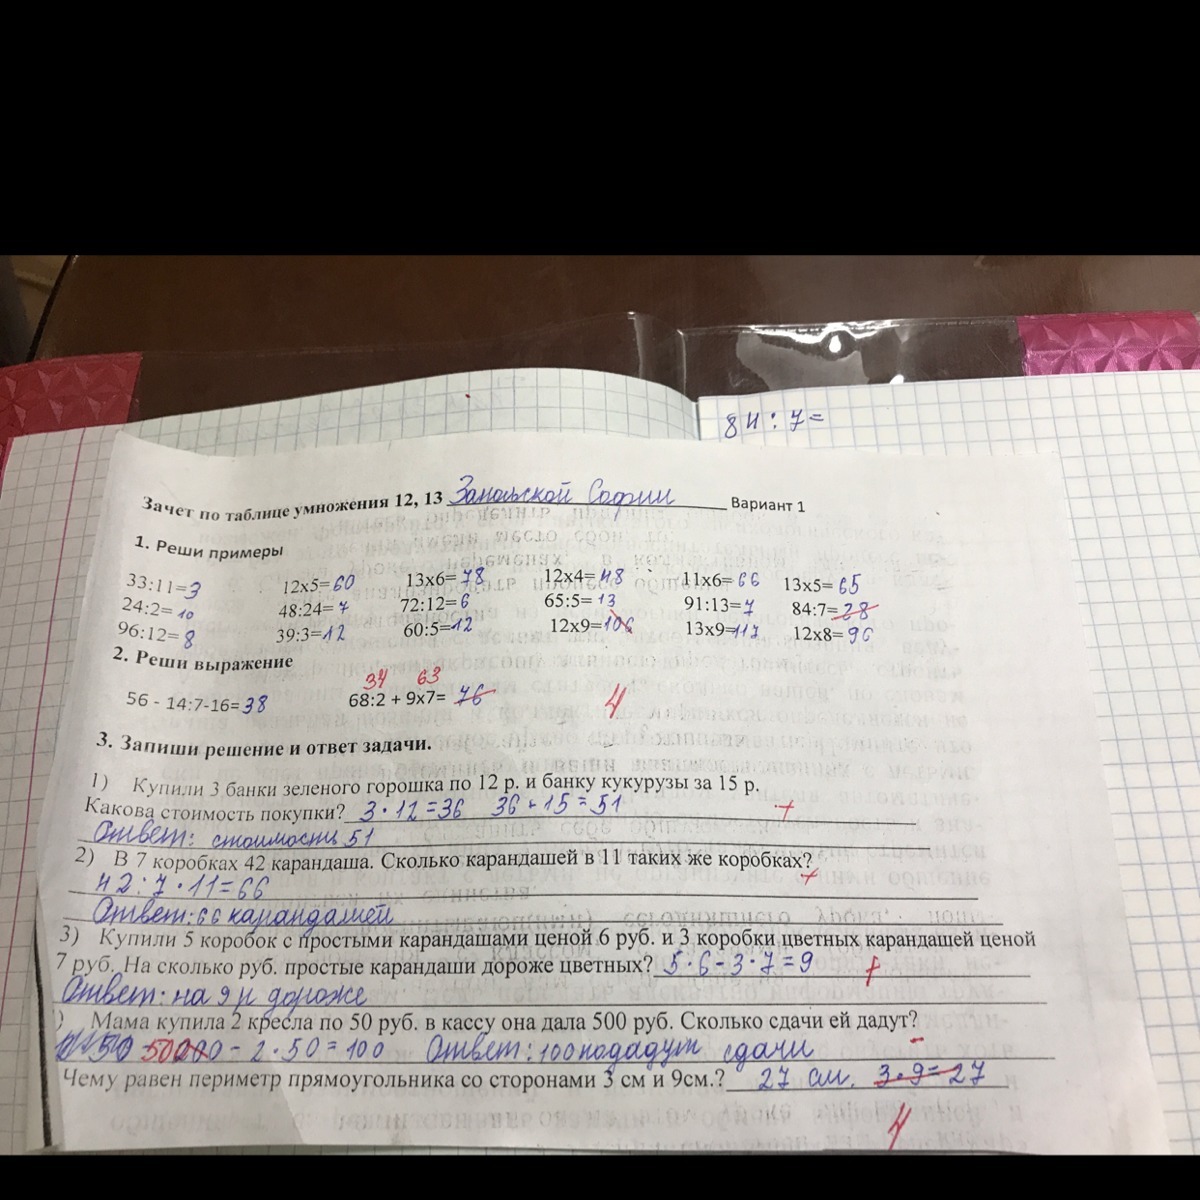 84:7=
Зачет по таблице умножения 12, 13 Запольской Софии Вариант 1
1. Реши примеры
33:11=3 12х5=60 13х6=78 12х4=48 11х6=66 13х5=65
24:2=10 48:24=7 72:12=6 65:5=13 91:13=7 84:7=28
96:12=8 39:3=12 60:5=12 12х9=106 13х9=117 12х8=96
2. Реши выражение
34 63
56 - 14:7-16=38 68:2 + 9х7=76 4
3. Запиши решение и ответ задачи.
1) Купили 3 банки зеленого горошка по 12 р. и банку кукурузы за 15 р.
Какова стоимость покупки? 3·12=36 36+15=51 +
Ответ: стоимость 51
2) В 7 коробках 42 карандаша. Сколько карандашей в 11 таких же коробках?
42:7·11=66 +
Ответ: 66 карандашей
3) Купили 5 коробок с простыми карандашами ценой 6 руб. и 3 коробки цветных карандашей ценой
7 руб. На сколько руб. простые карандаши дороже цветных? 5·6-3·7=9 +
Ответ: на 9 дороже
) Мама купила 2 кресла по 50 руб. в кассу она дала 500 руб. Сколько сдачи ей дадут?
- 2·50=100 Ответ: 100 сдачи -
Чему равен периметр прямоугольника со сторонами 3 см и 9см.? 27 см. 3·9=27
4